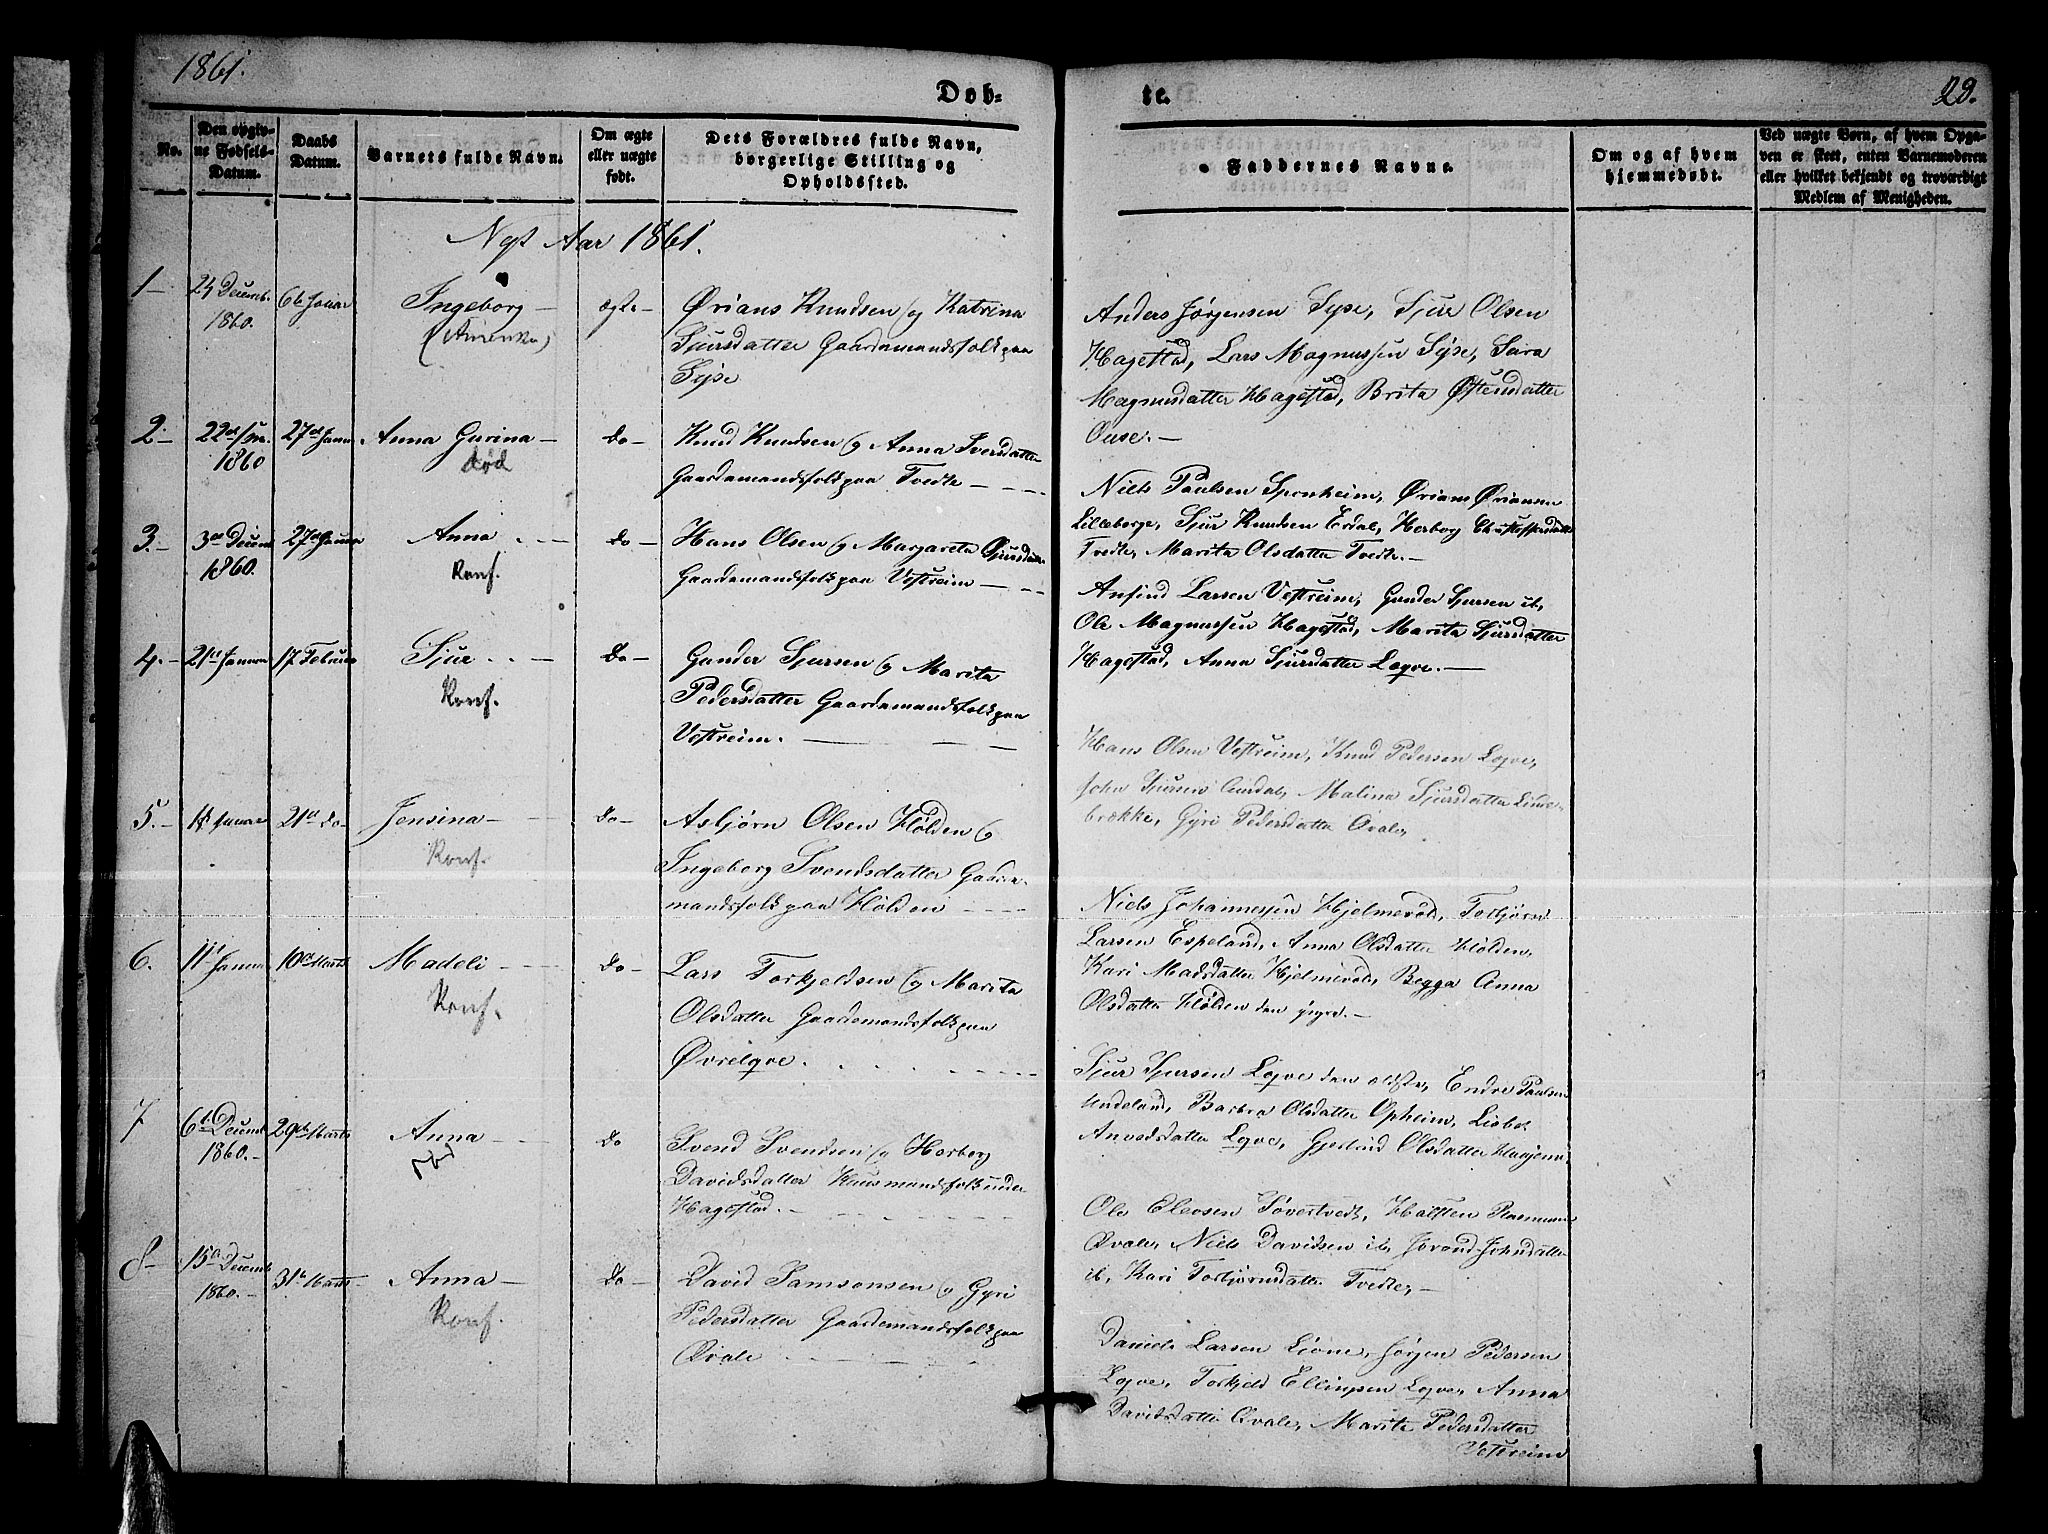 1861.
Døb-
te.
29.
No.
Den opgiv-
ne Fødsels-
Datum.
Daabs
Datum.
Barnets fulde Navn.
Om ægte
eller uægte
født.
Dets Forældres fulde Navn,
borgerlige Stilling og
Opholdssted.
Faddernes Navne.
Om og af hvem
hjemmedøbt.
Ved uægte Børn, af hvem Opga-
ven er skeet, enten Barnemoderen
eller hvilket bekjendt og troværdigt
Medlem af Menigheden.
Nyt Aar 1861.
1 24 Decemb. 6te Januar Ingeborg ægte Ørians Knudsen og Katrina
1860. Sjursdatter Gaardmandsfolk paa
Syse
Anders Jørgensen Syse, Sjur Olsen
Hagestad, Lars Magnussen Syse, Sara
Magnusdatter Hagestad, Brita Østensdatter
Ouse.
2 22de 27de Januar Anna Gurina Do Knud Knudsen og Anna Iversdatter
1860 død Gaardmandsfolk paa Tvedte
Niels Paulsen Sponheim, Ørians Øriansen
Lilleborge, Sjur Knudsen Erdal, Herborg Christoffersdatter
Tvedte, Marita Olsdatter Tvedte.
3. 3de Decem 27de Januar Anna Do Hans Olsen og Margareta Sjursdatter
1860. Konf. Gaardmandsfolk paa Vestreim
Anfind Larsen Vestreim, Gunder Sjursen ib,
Ole Magnussen Hagestad, Marita Sjursdatter
Hagestad, Anna Sjursdatter Leqve.
4. 21de Januar 17 Februar Sjur Do Gunder Sjursen og Marita
Konf. Pedersdatter Gaardmandsfolk paa
Vestreim.
Hans Olsen Vestreim, Knud Pedersen Leqve,
John Sjursen Aurdal, Malina Sjursdatter Linde-
brække, Gyri Pedersdatter Qvale,
5. Januar 21de Do Jensina Do Asbjørn Olsen Hölden og
Konf. Ingeborg Svendsdatter Gaard-
mandsfolk paa Hölden
Niels Johannessen Hjelmevold, Torbjørn
Larsen Espeland, Anna Olsdatter Hölden,
Kari Madsdatter Hjelmevold, Begga Anna
Olsdatter Hölden den yngre.
6. 11te Januar 10de Marts Madeli Do Lars Torkjeldsen og Marita
Konf. Olsdatter Gaardmandsfolk paa
Øvrelqve.
Sjur Sjursen Leqve den ældste, Endre Paulsen
Undeland, Barbra Olsdatter Opheim, Lisbet
Anvedsdatter Leqve, Gjerlaud Olsdatter
7 6te Decemb 29de Marts Anna Do Svend Svendsen og Herborg
1860. død Davidsdatter Huusmandsfolk under
Hagestad.
Ole Elevsen Søvestvedt, Halsten Rasmussen
Qvale, Niels Davidsen ib, Jorand Johnsdatter
ib, Kari Torbjørnsdatter Tvedte,
8 15de Decemb 31te Marts Anna Do David Samsonsen og Gyri
1860. Konf. Pedersdatter Gaardmandsfolk paa
Qvale
Daniel Larsen Lione, Jørgen Pedersen
Leqve, Torkjeld Ellingsen Leqve, Anna
Davidsdatter Qvale, Marita Pedersdatter
Vestreim